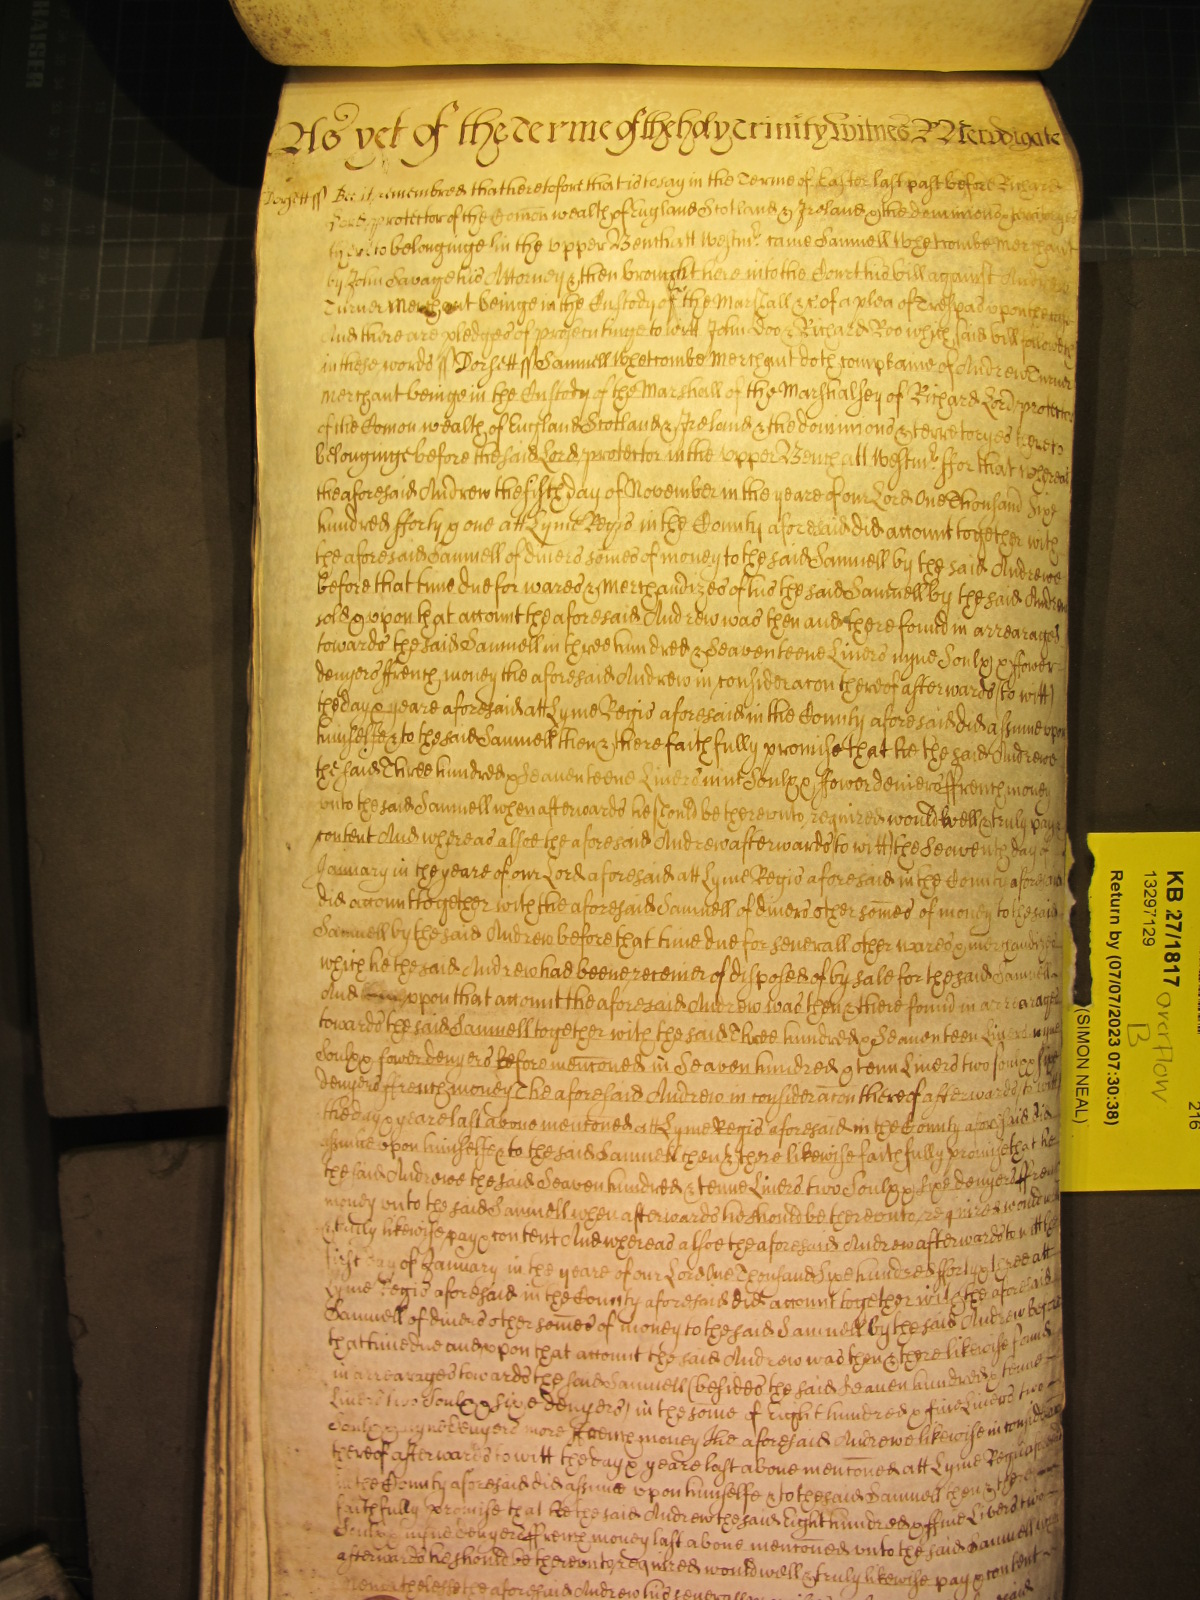 As yet of the Terme of the holy Trinity Witnes R Newdigate
Dorsett ss Bee it remembred that heretofore that is to say in the Terme of Easter last past before Richard
Lord protector of the Comon wealth of England Scotland & Ireland & the dominions &
thereto belonginge in the upper Bench att Westmr. came Samuell Whetcombe Merchant
by John Savage his Attorney & then brought here into the Court his bill against Andrew
Turner Merchant beinge in the Custody of the Marshall &c of a plea of Trespas upon the case
And there are pledges of prosecutinge to witt John Doo & Richard Roo which said bill followeth
in these words ss Dorsett ss Samuell Whetcombe Merchant doth complaine of Andrew Turner
merchant beinge in the Custody of the Marshall of the Marshalsey of Richard Lord protector
of the Comon wealth of England Scotland & Ireland & the dominions & terretoryes thereto
belonginge before the said Lord protector in the upper Bench att Westmr. ffor that whereas
the aforesaid Andrew the fifth day of November in the yeare of our Lord One Thousand Sixe
hundred fforty & one att Lyme Regis in the County aforesaid did account together with
the aforesaid Samuell of divers somes of money to the said Samuell by the said Andrewe
before that time due for wares & Merchandizes of his the said Samuell by the said Andrew
sold & upon that account the aforesaid Andrew was then and there found in arrearages
towards the said Samuell in three hundred & Seaventeene Livers nyne Soulx & fower
denyers ffrench money the aforesaid Andrew in consideracon thereof afterwards (to witt)
the day & yeare aforesaid att Lyme Regis aforesaid in the County aforesaid did assume upon
himselfe & to the said Samuell then & there faithfully promise that he the said Andrewe
the said Three hundred & Seaventeene Livers nine Soulx & ffower deniers ffrench money
unto the said Samuell when afterwards he should be thereunto required would well & truly pay &
content And whereas alsoe the aforesaid Andrew afterwards to witt the Seaventh day of
January in the yeare of our Lord aforesaid att Lyme Regis aforesaid in the County aforesaid
did account together with the aforesaid Samuell of divers other somes of money to the said
Samuell by the said Andrew before that time due for severall other wares & merchandizes
which he the said Andrew had beene receiver of disposed of by sale for the said Samuell
And upon that account the aforesaid Andrew was then & there found in arrearages
towards the said Samuell together with the said Three hundred & Seaventeen Livers nyne
Soulx & fower denyers before mencioned in Seaven hundred & tenn Livers two soulx & sixe
denyers ffrench money The aforesaid Andrew in consideracon thereof afterwards to witt
the day & yeare last above mencioned att Lyme Regis aforesaid in the County aforesaid did
assume upon himselfe & to the said Samuell then & there likewise faithfully promise that he
the said Andrewe the said Seaven hundred & tenne Livers two Soulx & Sixe denyers ffrench
money unto the said Samuell when afterwards he should be thereunto required would well
& truly likewise pay & content And whereas alsoe the aforesaid Andrew afterwards to witt the
first day of January in the yeare of our Lord One Thousand Sixe hundred fforty & three att
Lyme Regis aforesaid in the County aforesaid did account together with the aforesaid
Samuell of divers other somes of money to the said Samuell by the said Andrew before
that time due and upon that account the said Andrew was then & there likewise found
in arrearages towards the said Samuell (besides the said Seaven hundred & tenne
Livers two Soulx & sixe denyers) in the some of eight hundred & five Livers two
Soulx & nyne denyers more ffrench money the aforesaid Andrewe likewise in consideracon
thereof afterwards to witt the day & yeare last above mencioned att Lyme Regis aforesaid
in the County aforesaid did assume upon himselfe & to the said Samuell then & there
faithfully promise that he the said Andrew the said Eight hundred & ffive Livers two
Soulx & nyne denyers ffrench money last above mencioned unto the said Samuell when
afterwards he should be thereunto required would well & truly likewise pay & content
Neverthelesse the aforesaid Andrew his severall
KB 27/1817
13297129
Return by (07/07/2023 07:30:38)
(SIMON NEAL)
overflow
B
216